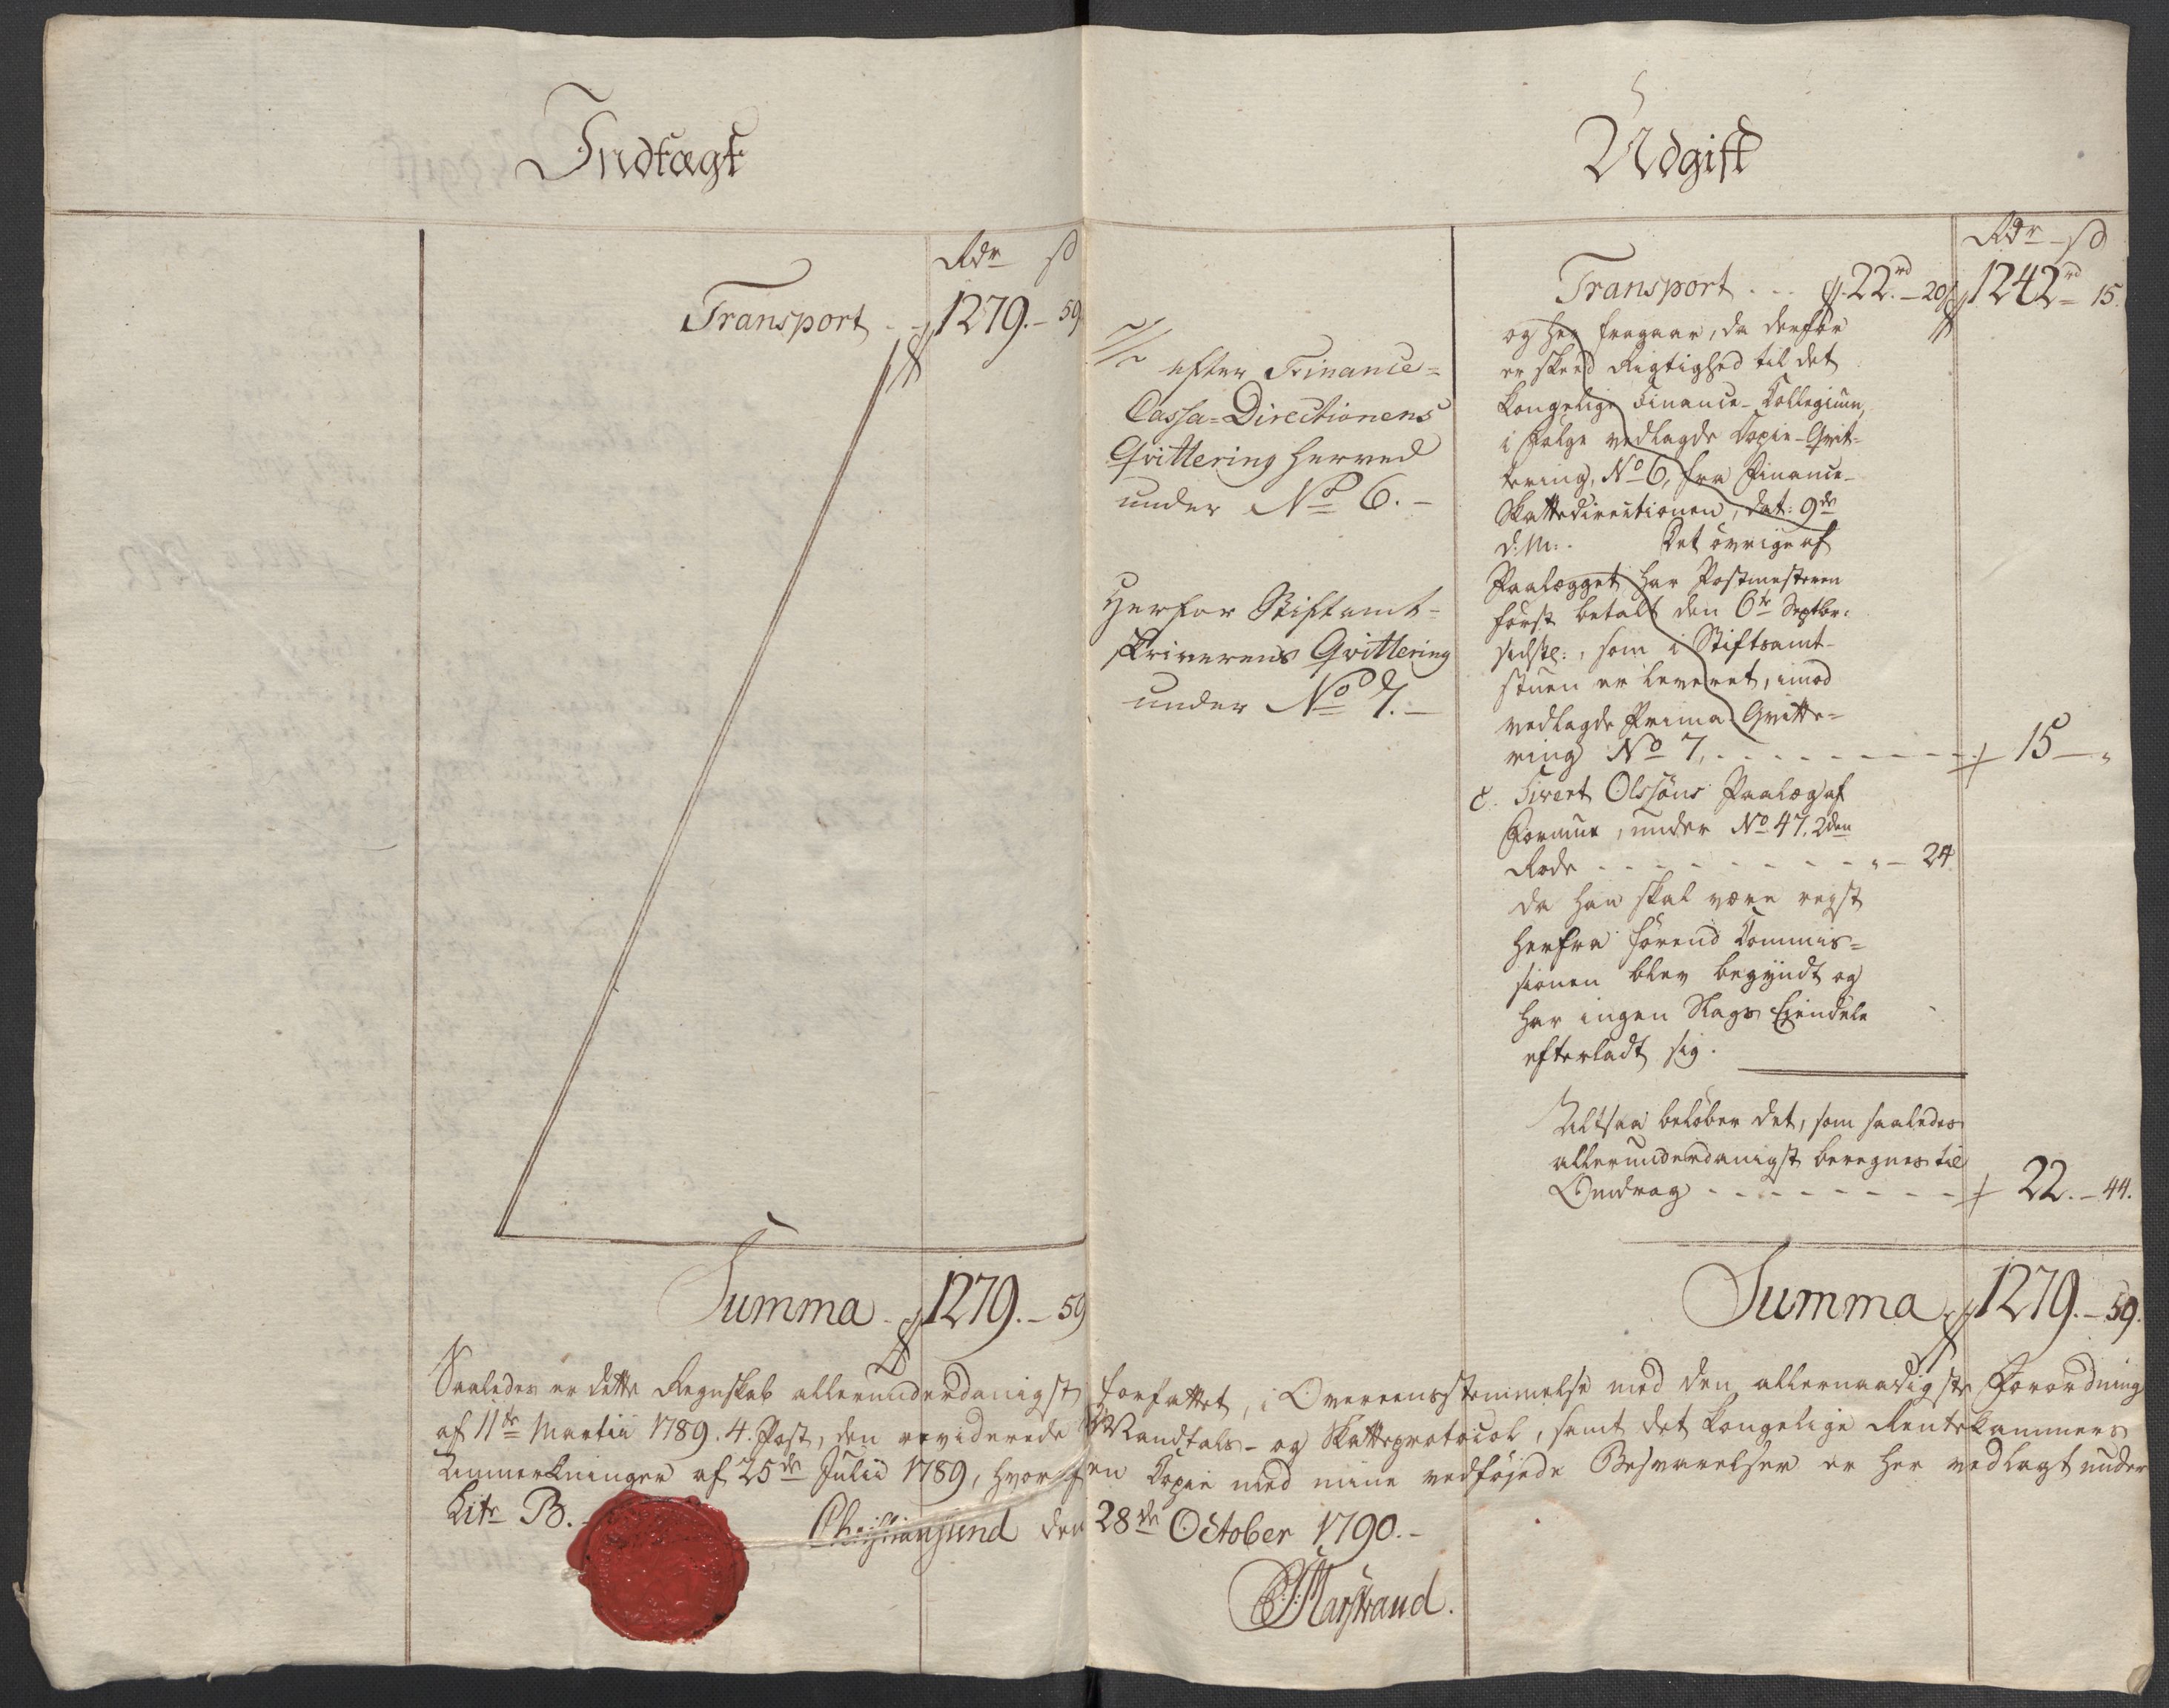 Indtægt
Rdr sd
Transport - 1279. - 59
Summa - 1279. - 59
Udgift
Rdr - sd
Transport . . . 22rd. - 20 1242rd - 15.
efter Finance=
Cassa=Directionens
Qvittering herved
under No 6. -
Herfor Stiftamt=
skriverens Qvittering
under No 7. -
og her fragaar, da derfor
er skeed Rigtighed til det
kongelige Finance-Collegium,
i følge vedlagde Copie-Qvit=
tering, No 6, fra Finance-
Skattedirectionen, dat: 9de
d. M: . Det øvrige af
Paalægget har Postmesteren
først betalt den 6te Septbr:
sidstl:, som i Stiftsamt-
stuen er leveret, imod
vedlagde Prima Qvitte=
ring No 7, - - - - - - - - 15 - "
c. Sivert Olssøns Paalæg af
Formue, under No 47, 2den
Rode - - - - - - - - - " - 24
da han skal være reyst
herfra førend Commis=
sionen blev begyndt og
har ingen Slags Eiendele
efterladt sig.
Altsaa beløber det, som saaledes
allerunderdanigst beregnes til
Omdrag - - - - - - - - 22. - 44.
Summa 1279. - 59.
Saaledes er dette Regnskab allerunderdanigst forfattet, i Overeensstemmelse med den allernaadigste Forordning
af 11te Martii 1789. 4. Post, den reviderede Mandtals- og Skatteprotocol, samt det kongelige Rentekammers
Anmerkninger af 25de Julii 1789, hvoraf en Copie med mine vedføjede Besvarelser er her vedlagt under
Litr B. -
Christiansund den 28de October 1790. -
Marstrand.